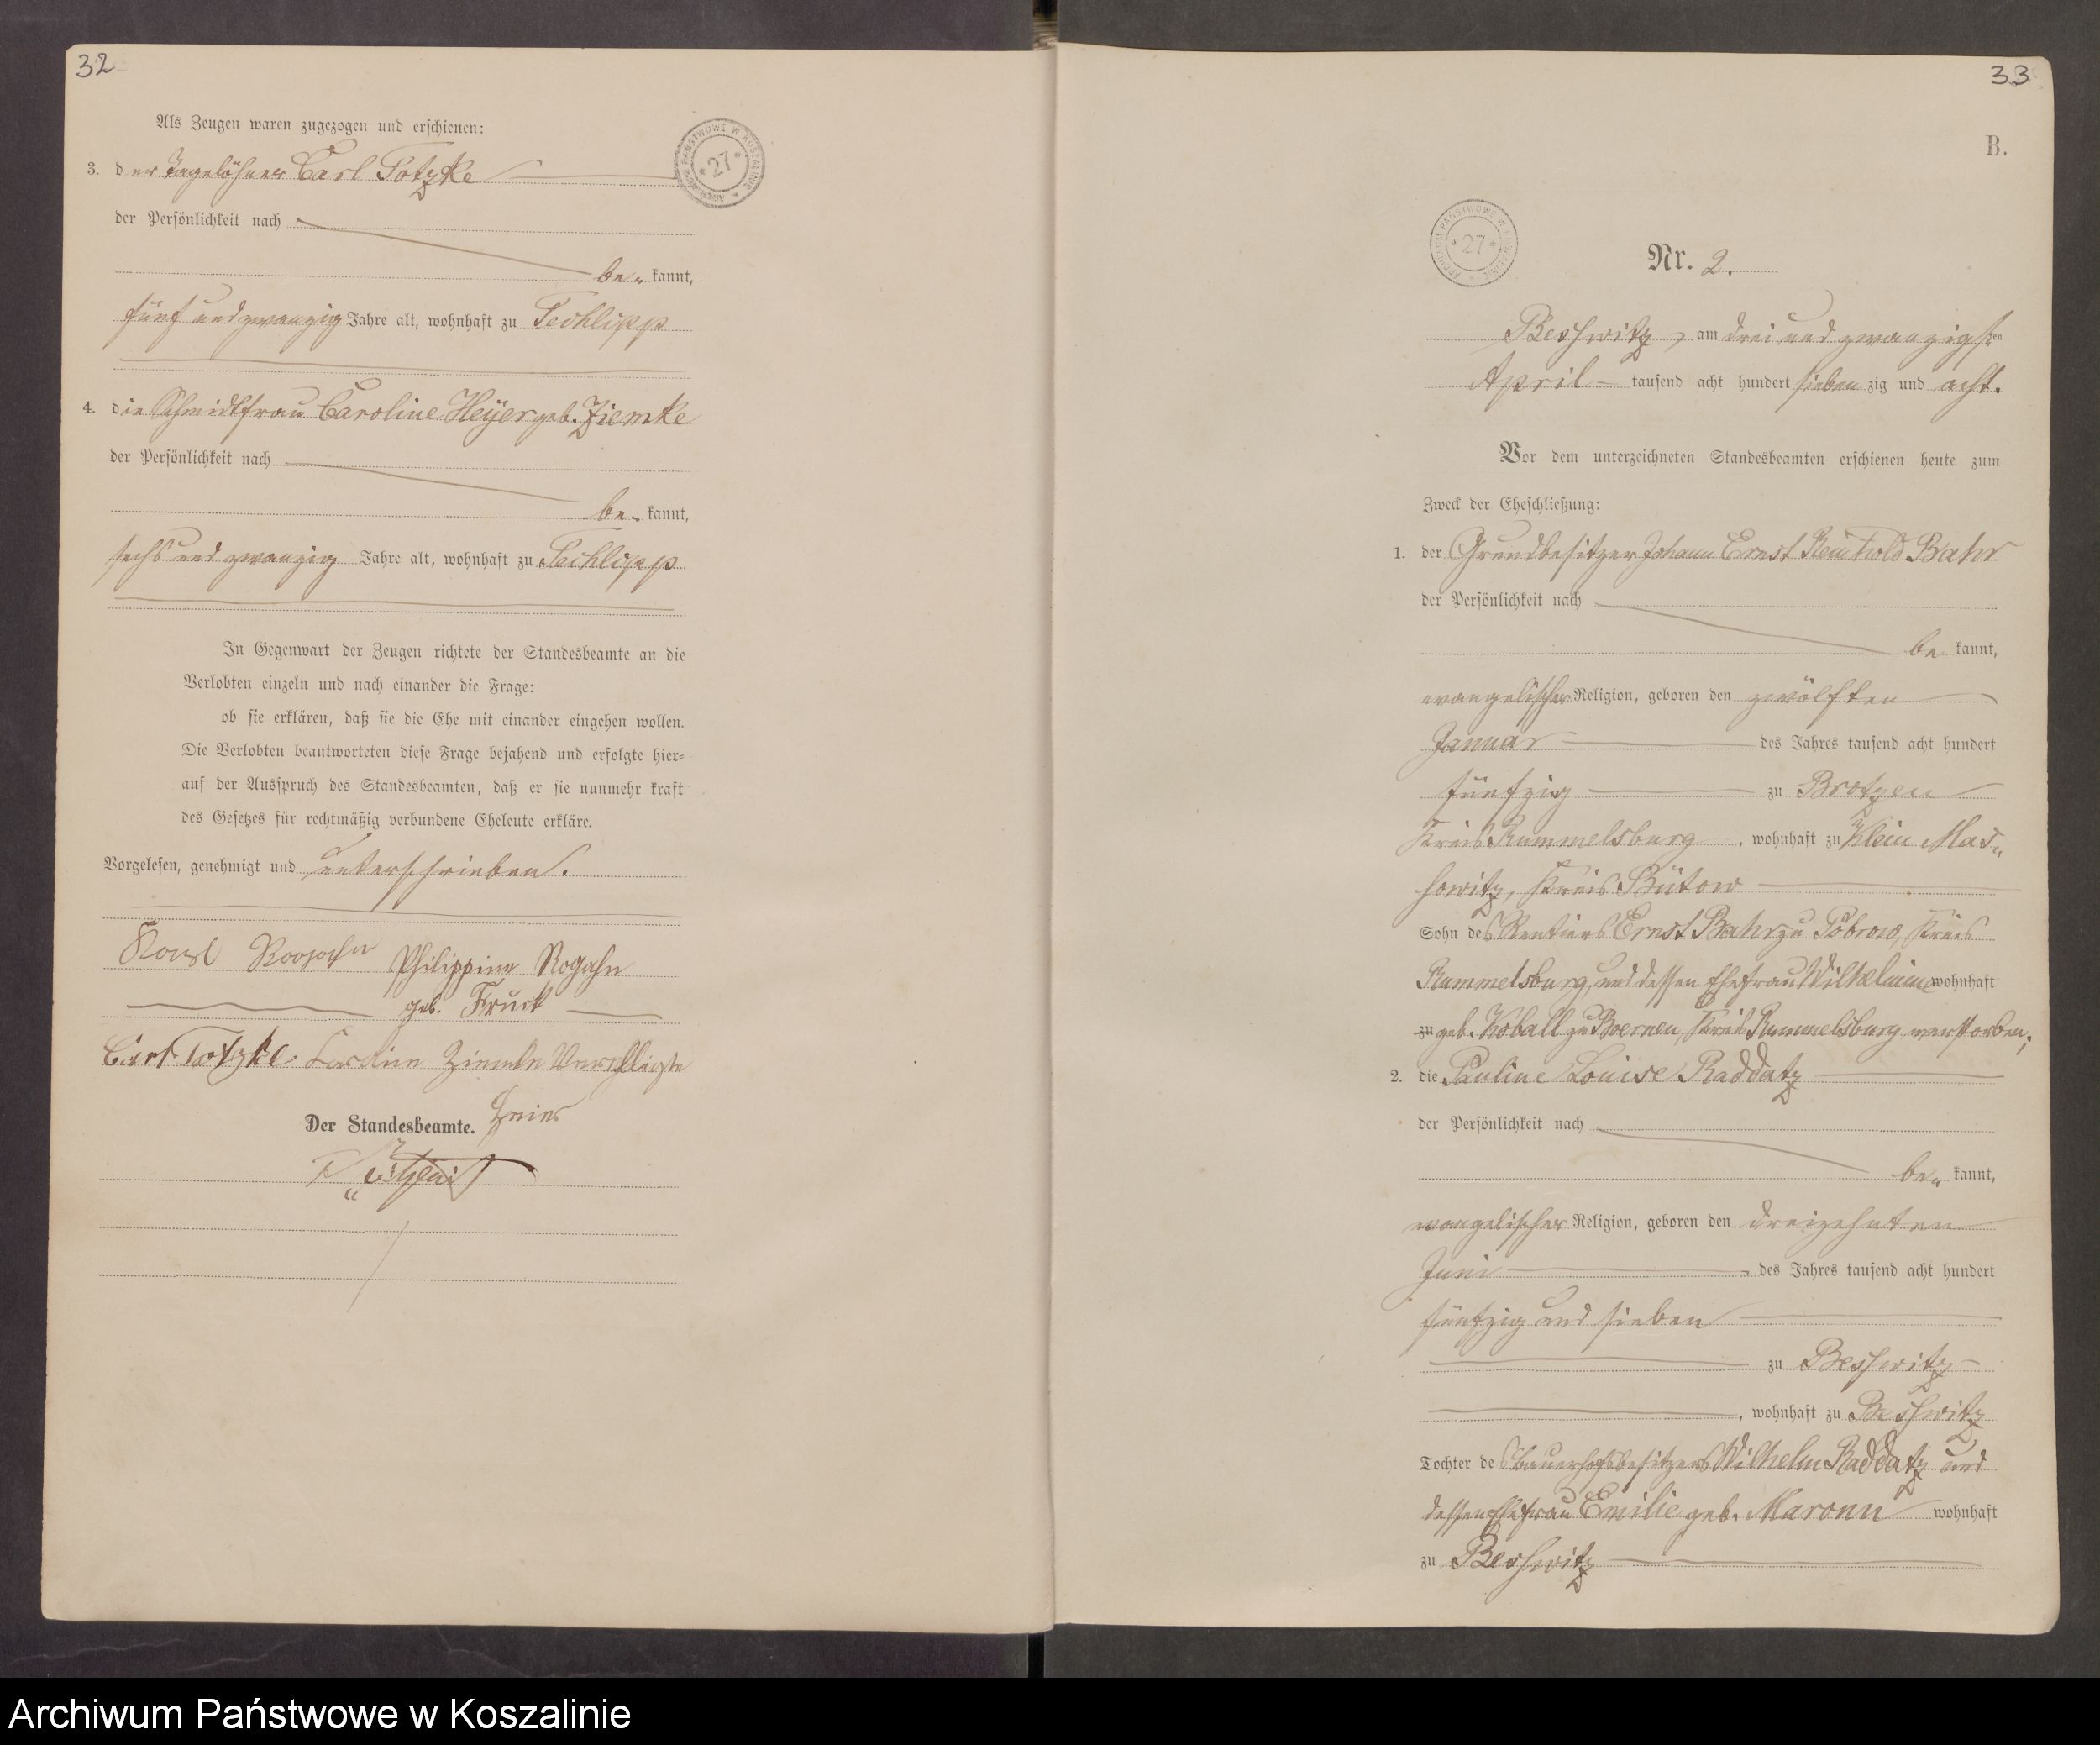 32
Als Zeugen waren zugezogen und erschienen:
3. der Tagelöhner Carl Totzke
der Persönlichkeit nach
be- kannt,
fünf und zwanzig Jahre alt, wohnhaft zu Techlipp
4. die Schmidtfrau Caroline Heyer geb. Ziemke
der Persönlichkeit nach
be- kannt,
sechs und zwanzig Jahre alt, wohnhaft zu Techlipp
In Gegenwart der Zeugen richtete der Standesbeamte an die
Verlobten einzeln und nach einander die Frage:
ob sie erklären, daß sie die Ehe mit einander eingehen wollen.
Die Verlobten beantworteten diese Frage bejahend und erfolgte hier-
auf der Ausspruch des Standesbeamten, daß er sie nunmehr kraft
des Gesetzes für rechtmäßig verbundene Eheleute erkläre.
Vorgelesen, genehmigt und unterschrieben.
Philippine Rogahn
geb.
Carl Totzke Ziemke
Der Standesbeamte.
ARCHIWUM PAŃSTWOWE W KOSZALINIE * 27 *
33
B.
ARCHIWUM PAŃSTWOWE W KOSZALINIE * 27 *
Nr. 2.
Beßwitz, am drei und zwanzigsten
April tausend acht hundert siebenzig und acht.
Vor dem unterzeichneten Standesbeamten erschienen heute zum
Zweck der Eheschließung:
1. der Grundbesitzer Johann Ernst Reinhold Bahr
der Persönlichkeit nach
be kannt,
evangelischer Religion, geboren den zwölften
Januar des Jahres tausend acht hundert
fünfzig zu Brotzen
Kreis Rummelsburg, wohnhaft zu Klein Mas-
sowitz, Kreis Bütow
Sohn des Rentiers Ernst Bahr zu Pobrow, Kreis
Rummelsburg, und dessen Ehefrau Wilhelmine wohnhaft
zu geb. Koball zu Bernen, Kreis Rummelsburg verstorben;
2. die Pauline Louise Raddatz
der Persönlichkeit nach
be- kannt,
evangelischer Religion, geboren den dreizehnten
Juni des Jahres tausend acht hundert
fünfzig und sieben
zu Beßwitz
, wohnhaft zu Beßwitz
Tochter des Bauerhofsbesitzers Wilhelm Raddatz und
dessen Ehefrau Emilie geb. Maronn wohnhaft
zu Beßwitz
Archiwum Państwowe w Koszalinie